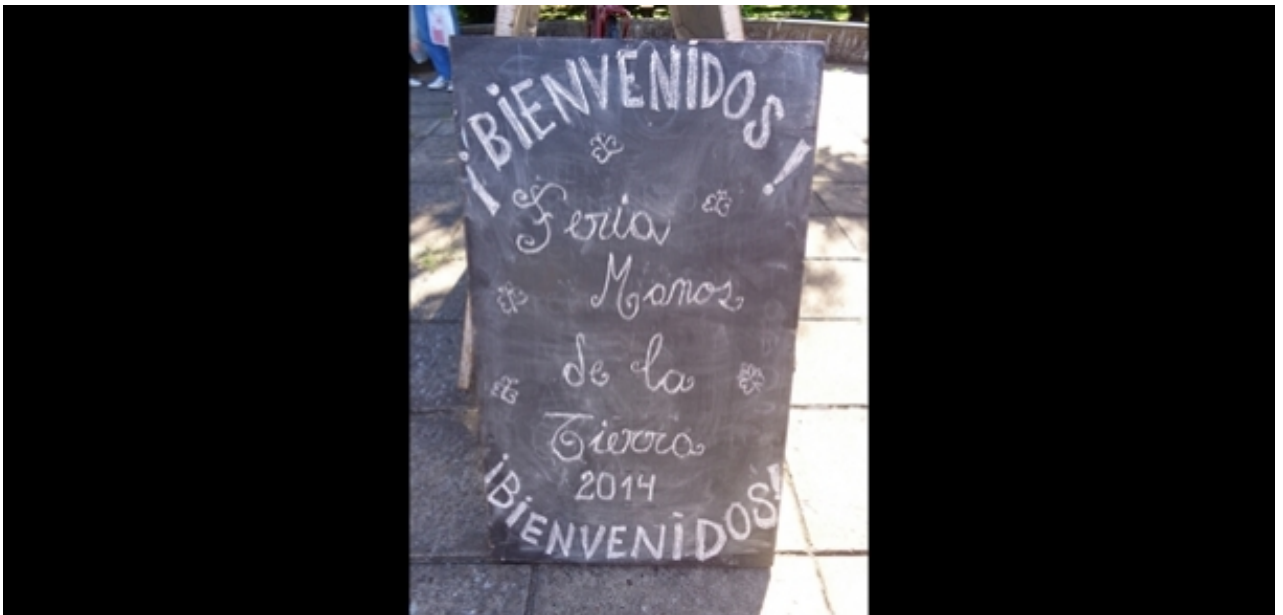 ¡BIENVENIDOS!
Feria
Manos
de la
Tierra
2014
¡BIENVENIDOS!